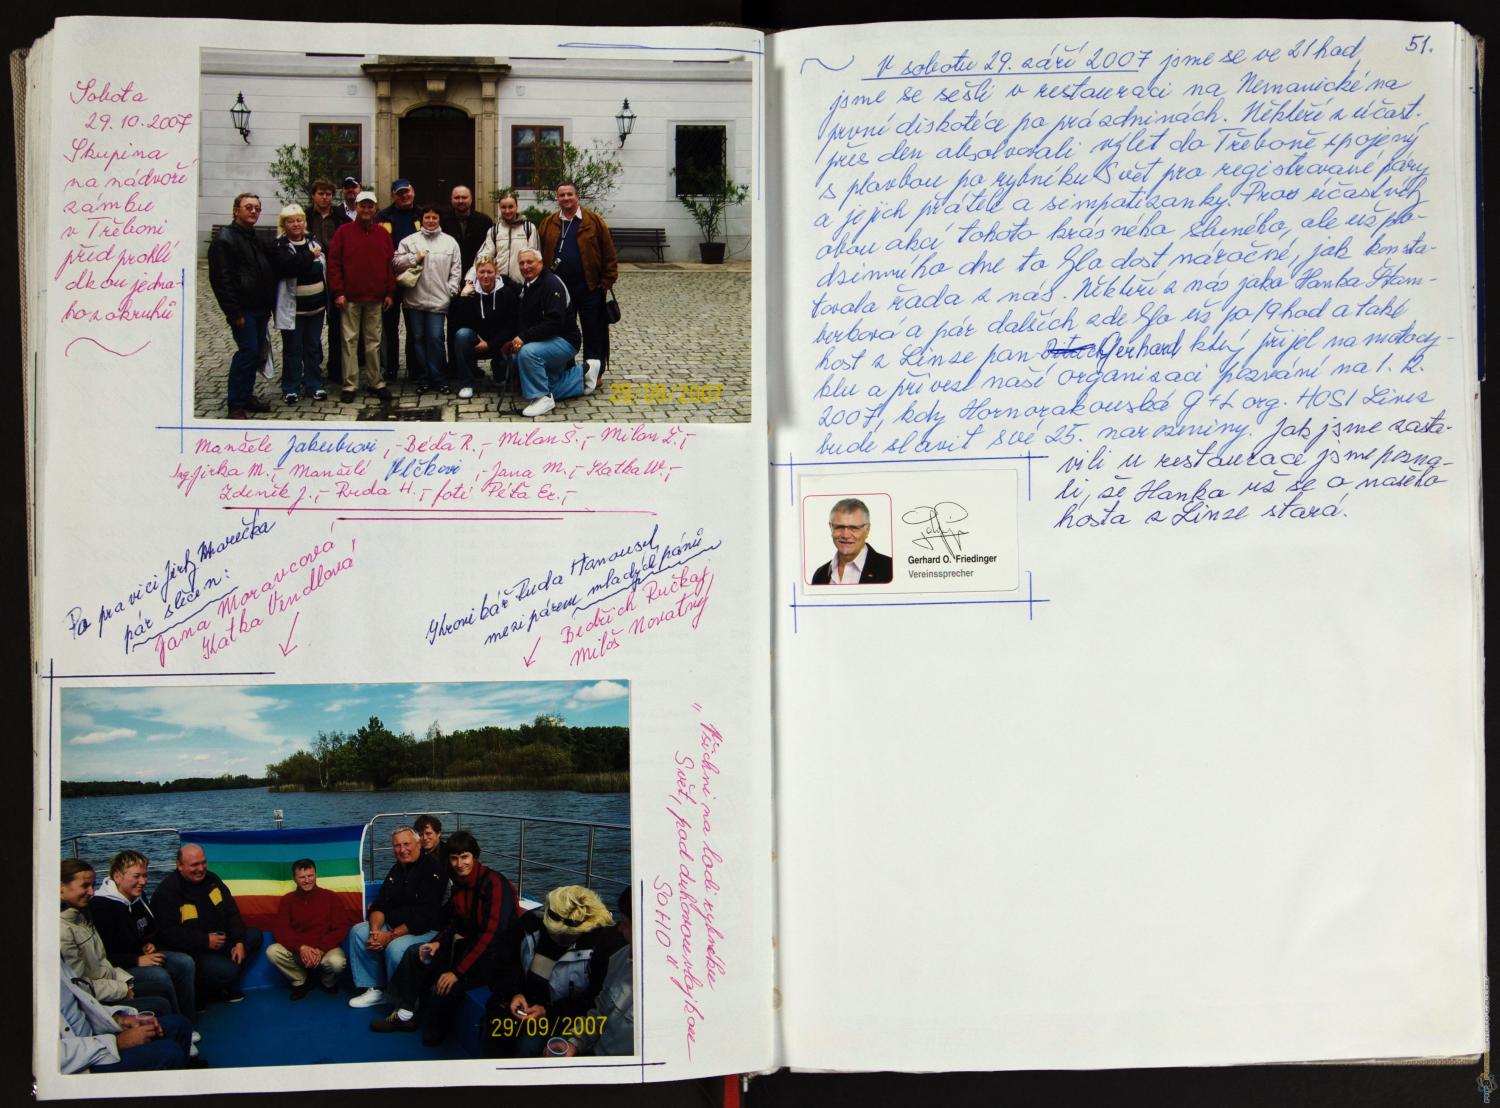 Sobota
29.10.2007
Skupina
na nádvoří
zámku
v Třeboni
před prohlí
dkou jedno-
ho z okruhů
29/09/2007
Manželé Jakubcovi, - Béďa R., - Milan Š., - Milan Ž., -
Ing. Jirka M., - Manželé Vlčkovi, - Jana M., - Katka W., -
Zdeněk J., - Ruda H., - fotí Péťa Er., -
Po pravici Jirky Marečka
pár slečen:
Jana Moravcová
Katka Vendlová
Chronikář Ruda Hanousel
mezi párem mladých pánů
Bedřich Ručkaj
Miloš Novatný
"Všichni na lodi rybníku
Svět, pod duhovou vlajkou
SOHO"
29/09/2007
51.
V sobotu 29. září 2007 jsme se ve 21 hod,
jsme se sešli v restauraci na Nemanické na
první diskotéce po prázdninách. Někteří z účast.
přes den absolvovali výlet do Třeboně spojený
s plavbou po rybníku Svět pro registrované páry
a jejich přátele a simpatizanky. Pro účastníky
obou akcí tohoto krásného slunného, ale už po-
dzimního dne to bylo dost náročné, jak konsta-
tovala řada z nás. Někteří z nás jako Hanka Štam-
berková a pár dalších zde bylo už po 19 hod a také
host z Linze pan Gerhard který přijel na motocy-
klu a přivezl naší organizaci pozvání na 1. 12.
2007, kdy Hornorakouská G+L org. HOSI Linz
bude slavit své 25. narozeniny. Jak jsme zasta-
vili u restaurace jsme pozna-
li, že Hanka už se o našeho
hosta z Linze stará.
Gerhard O. Friedinger
Vereinssprecher